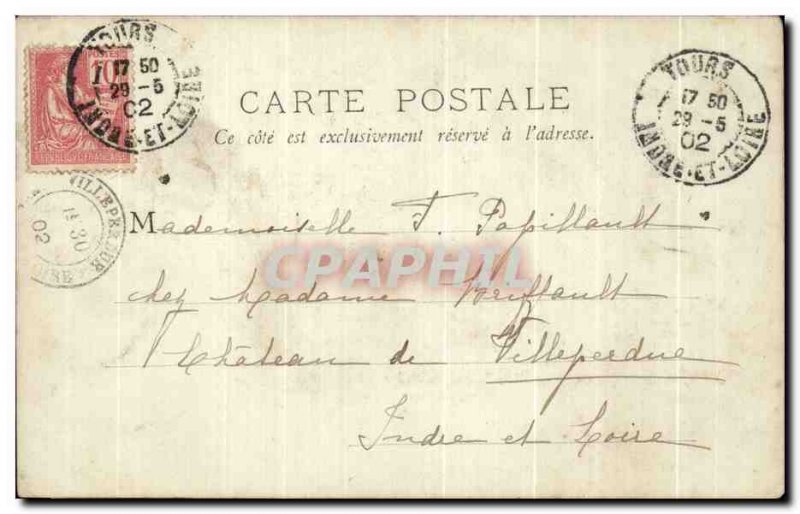 TOURS
17 50
29 -5
02
INDRE-ET-LOIRE
POSTES
10
TOURS
17 50
29 -5
02
INDRE-ET-LOIRE
CARTE POSTALE
Ce côté est exclusivement réservé à l'adresse.
30
02
Mademoiselle F. Papillault
CPAPHIL
chez Madame
Château de Villeperdue
Indre et Loire